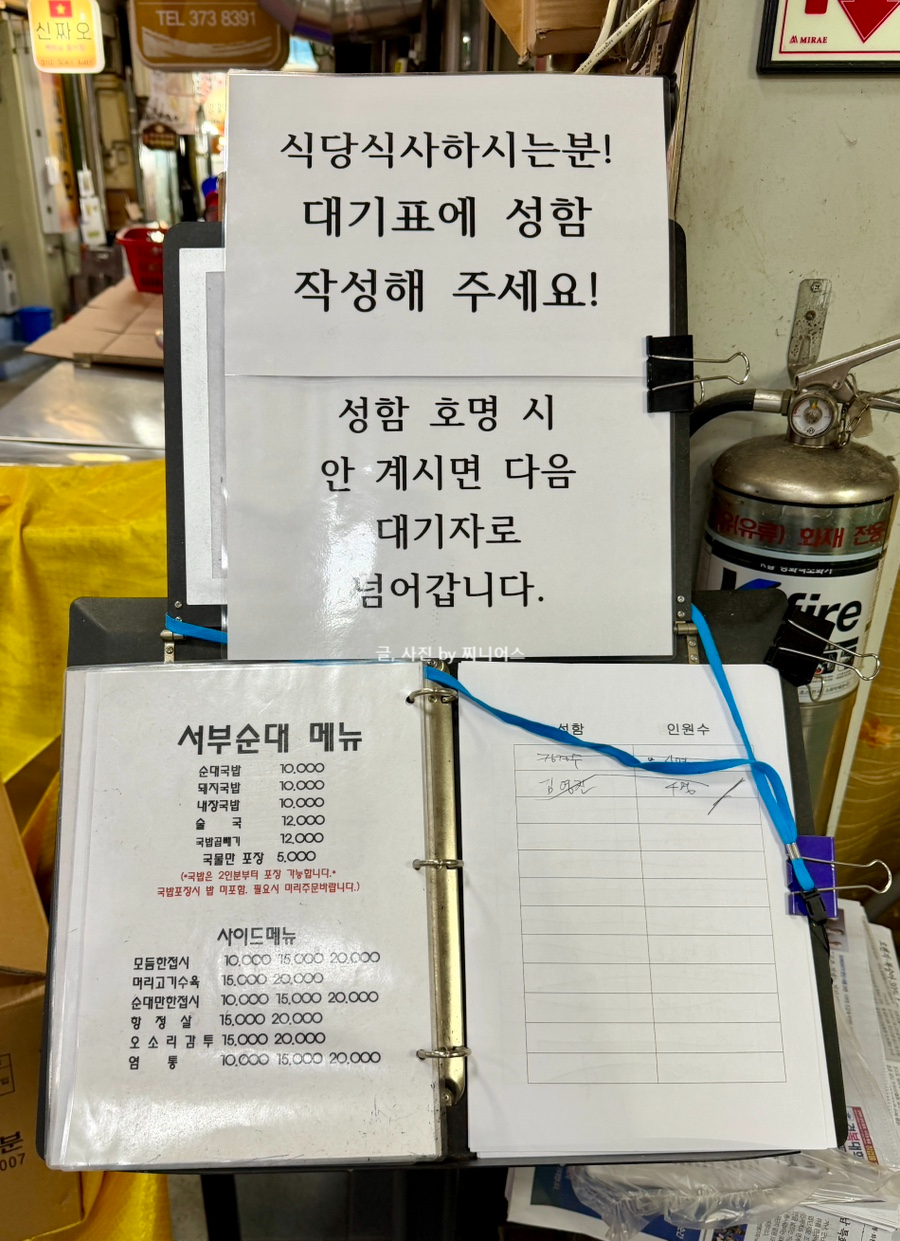 신짜오
TEL 373 8391
MIRAE
식당식사하시는분!
대기표에 성함
작성해 주세요!
성함 호명 시
안 계시면 다음
대기자로
넘어갑니다.
글, 사진 by 찌니어스
(유류) 화재 전용
K급 강화액소화기
fire
서부순대 메뉴
순대국밥 10,000
돼지국밥 10,000
내장국밥 10,000
술 국 12,000
국밥곱빼기 12,000
국물만 포장 5,000
(*국밥은 2인분부터 포장 가능합니다.*
국밥포장시 밥 미포함. 필요시 미리주문바랍니다.)
사이드메뉴
모듬한접시 10,000 15,000 20,000
머리고기수육 15,000 20,000
순대만한접시 10,000 15,000 20,000
항 정 살 15,000 20,000
오 소 리 감 투 15,000 20,000
염 통 10,000 15,000 20,000
성함 인원수
분
007